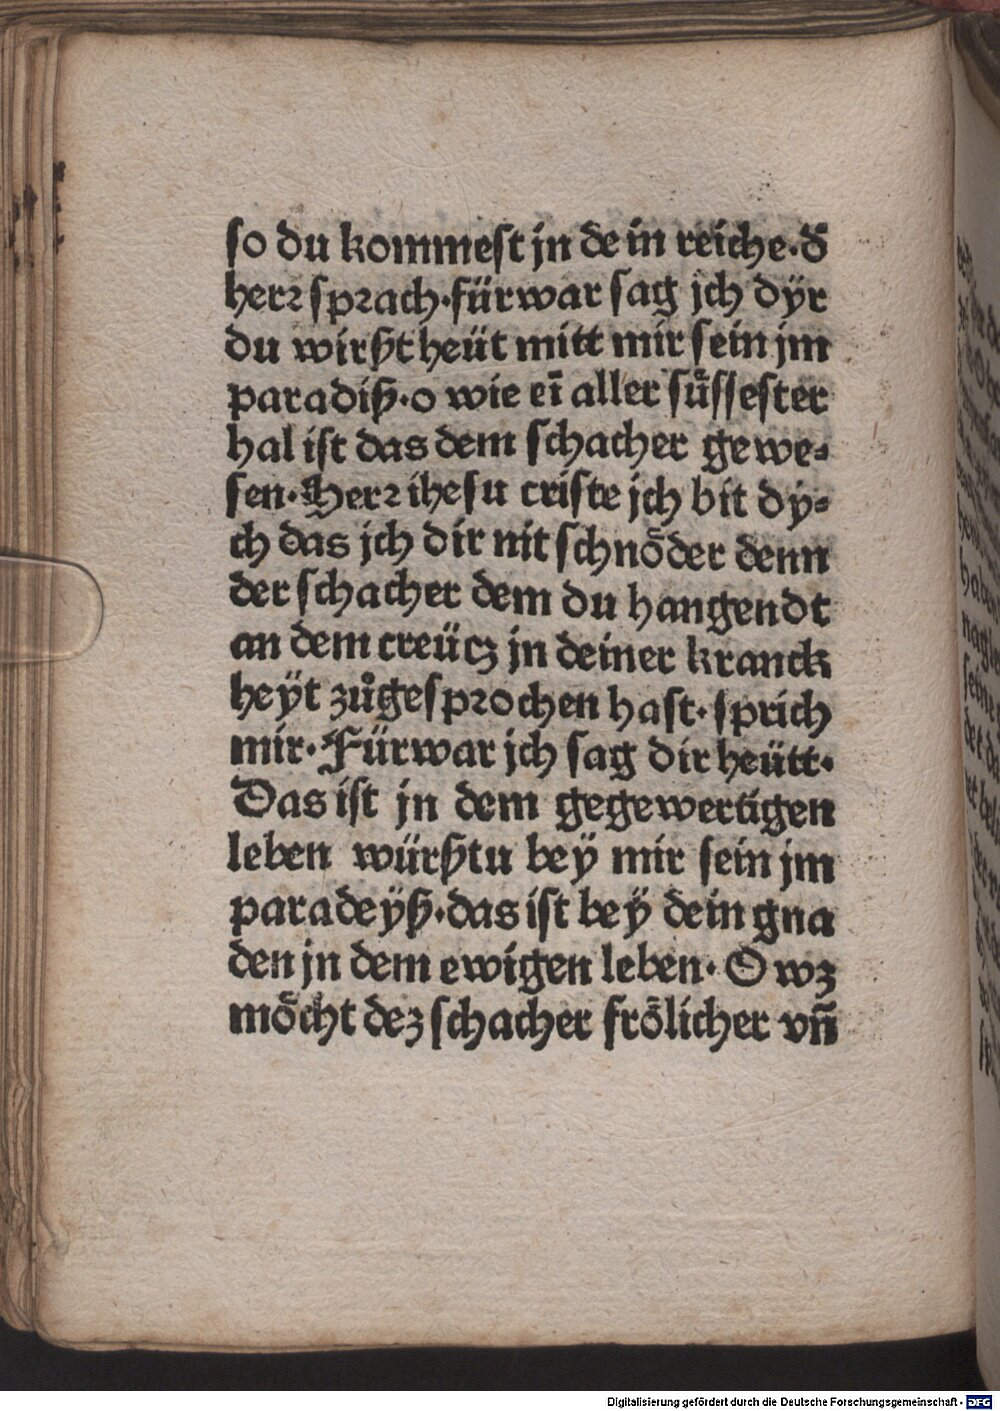 so du kommest jn de in reiche·d̄
herꝛ spꝛach·fürwar sag jch dÿr
du wirßt heüt mitt mir sein jm
paradiß·o wie eī aller suͤssester
hal ist das dem schacher gewe⸗
sen·Herꝛ ihesu criste jch bit dy⸗
ch das jch dir nit schnoͤder denn
der schacher dem du hangendt
an dem creücz jn deiner kranck
heÿt zuͦgespꝛochen hast·sprich
mir·Fürwar jch sag dir heütt·
Das ist jn dem gegewertigen
leben würßtu beÿ mir sein jm
paradeÿß·das ist beÿ dein gna
den jn dem ewigen leben·O wz
moͤcht dez schacher froͤlicher vñ
Digitalisierung gefördert durch die Deutsche Forschungsgemeinschaft - DFG